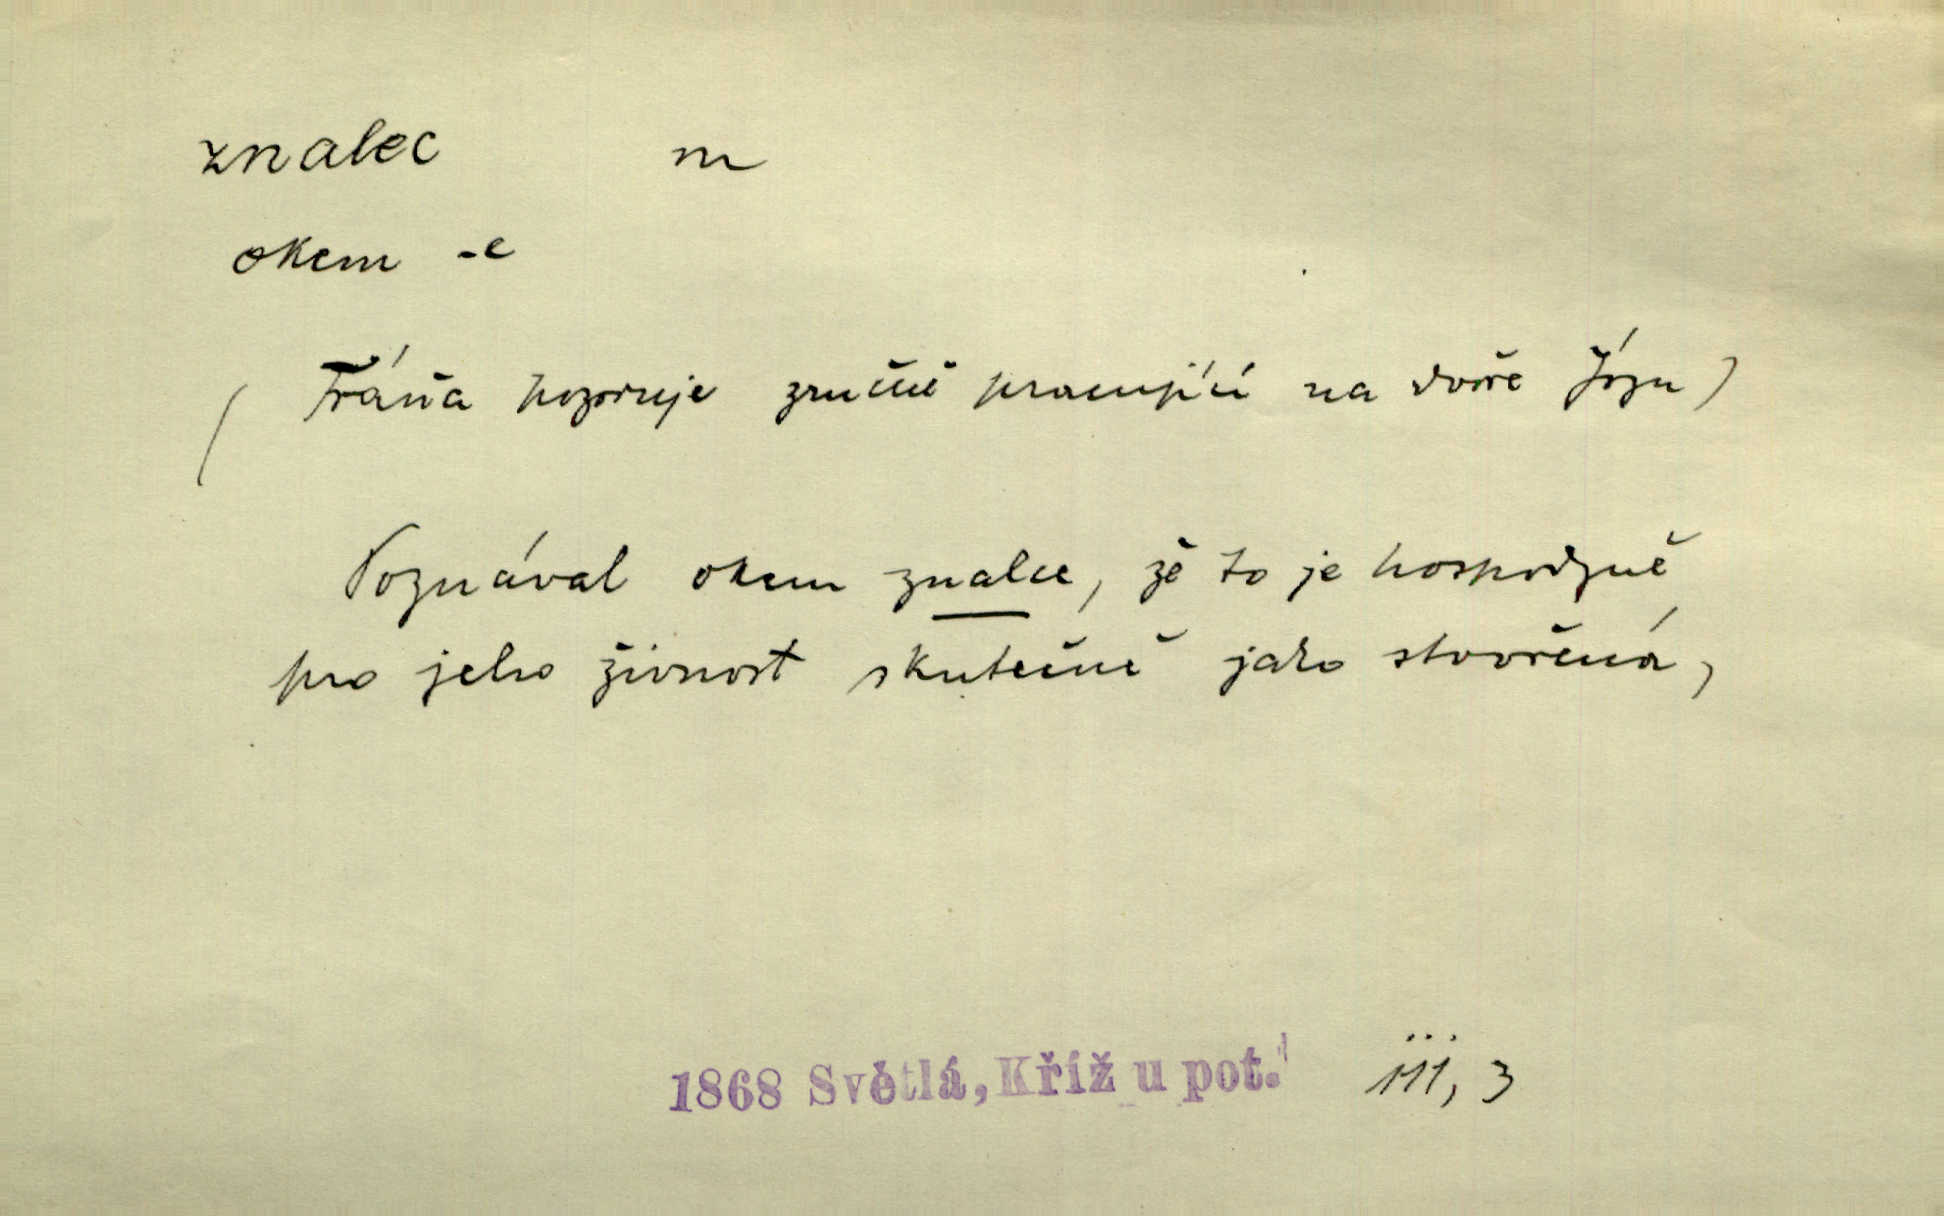 znalec m
okem -e
( Fráňa pozoruje zručně pracující na dvoře Józu )
Poznával okem znalce, že to je hospodyně
pro jeho živnost skutečně jako stvořená,
1868 Světlá, Kříž u pot. iii, 3